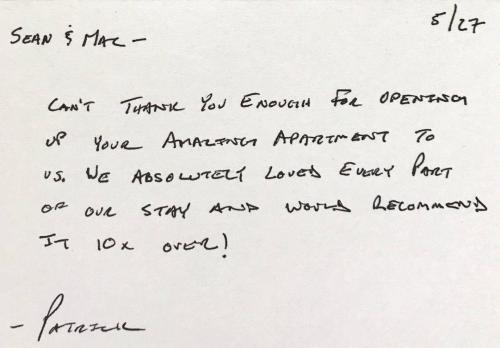 5/27
SEAN & MAC —
CAN'T THANK YOU ENOUGH FOR OPENING
UP YOUR AMAZING APARTMENT TO
US. WE ABSOLUTELY LOVED EVERY PART
OF OUR STAY AND WOULD RECOMMEND
IT 10x OVER!
— PATRICK